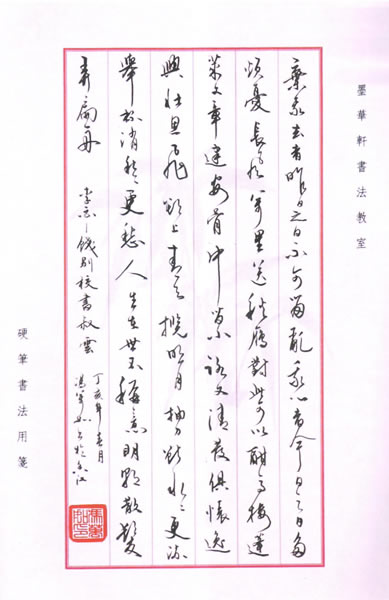 墨華軒書法教室
棄我去者昨日之日不可留亂我心者今日之日多
煩憂長風萬里送秋雁對此可以酣高樓蓬
萊文章建安骨中間小謝又清發俱懷逸
興壯思飛欲上青天攬明月抽刀斷水水更流
舉杯消愁愁更愁人生在世不稱意明朝散髮
弄扁舟 李白餞別校書叔雲
丁亥年春月
硬筆書法用箋